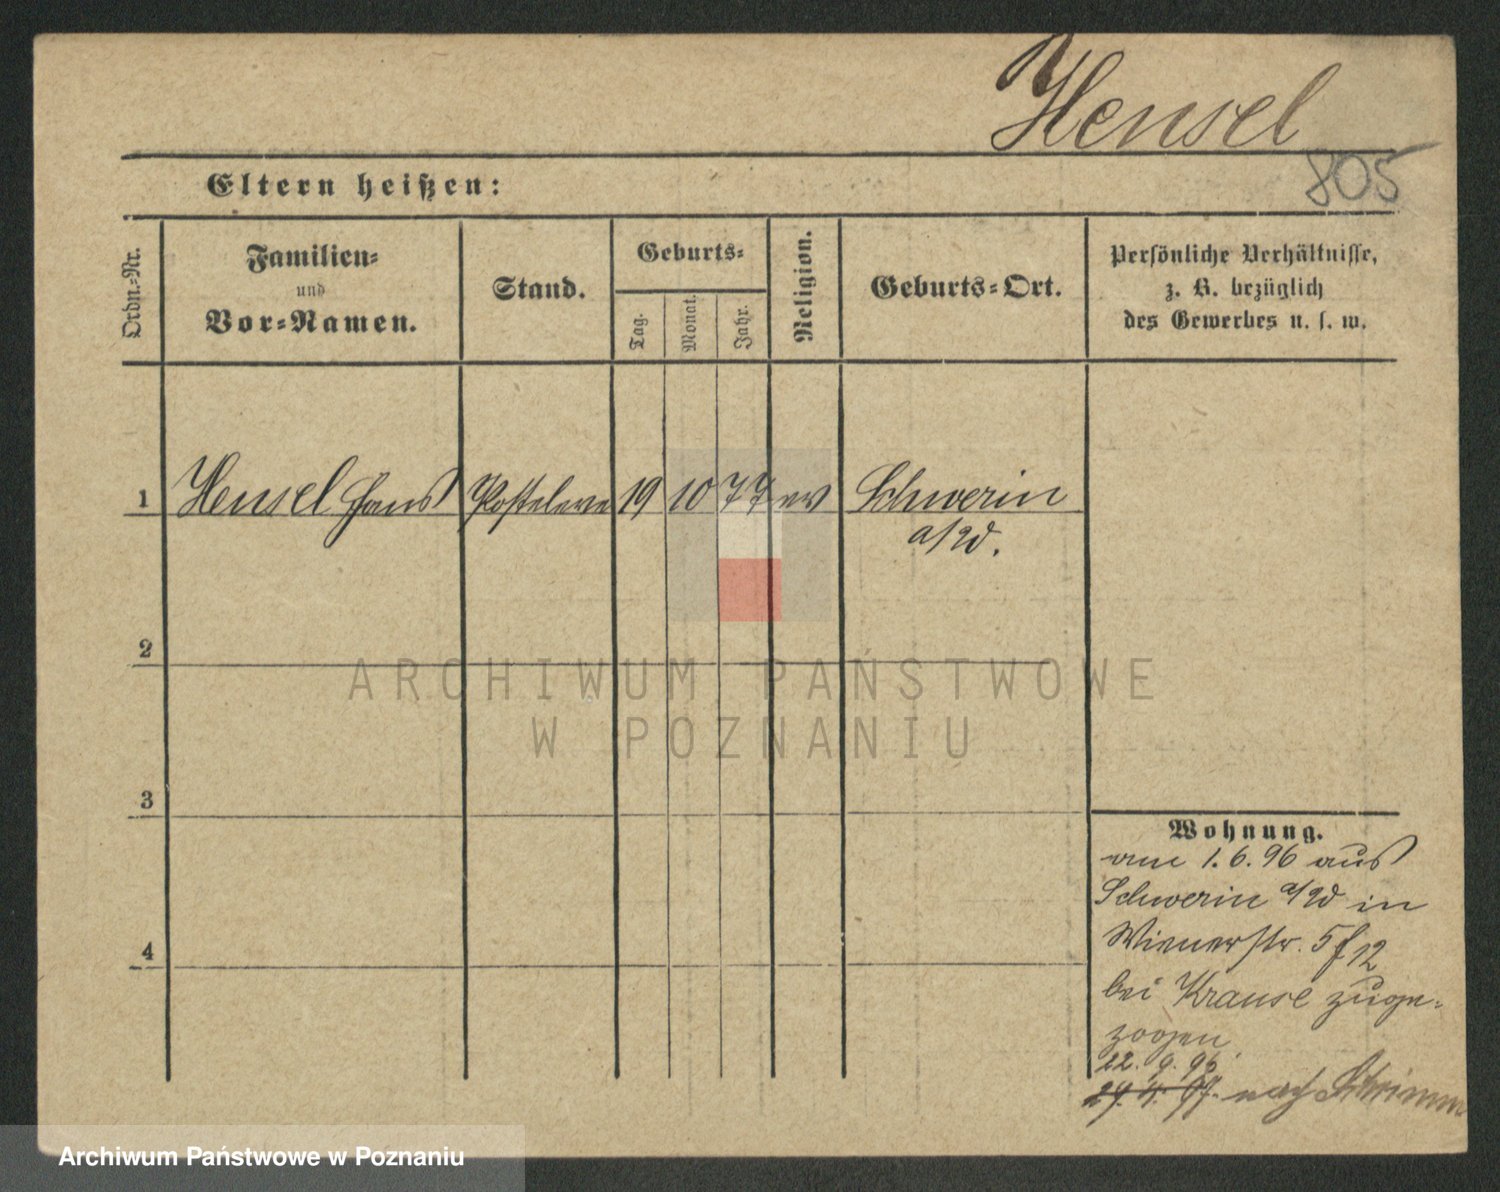 Hensel
805
Eltern heißen:
Ordn.-Nr.
Familien-
und
Vor-Namen.
Stand.
Geburts-
Tag.
Monat.
Jahr.
Religion.
Geburts-Ort.
Persönliche Verhältnisse,
z. B. bezüglich
des Gewerbes u. s. w.
1 Hensel Hans Posteleve 19 10 77 ev Schwerin
a/W.
2
ARCHIWUM PAŃSTWOWE
W POZNANIU
3
Wohnung.
am 1.6.96 aus
Schwerin a/W in
Wienerstr. 5 f 12
bei Krause zuge-
zogen
4
22. 9. 96
nach Schrimm
Archiwum Państwowe w Poznaniu